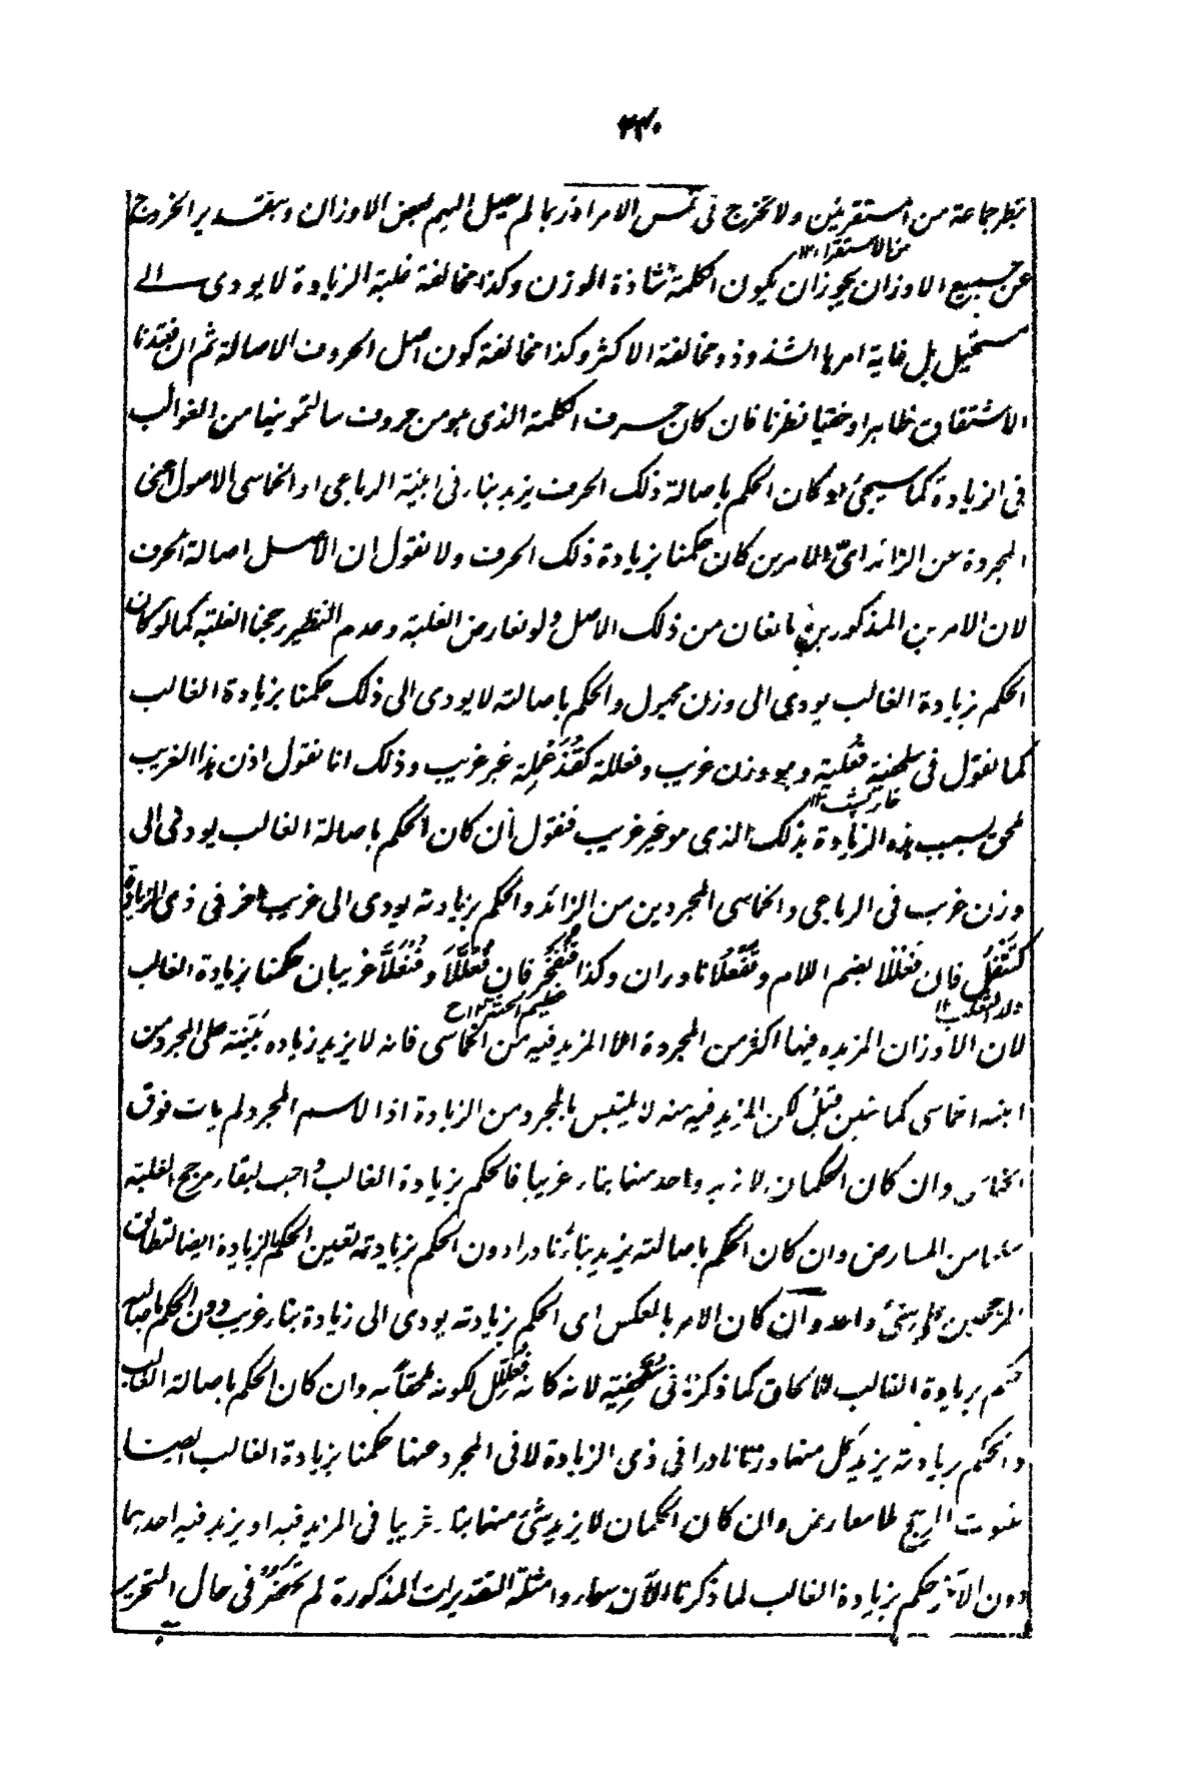 ٢٣٠
بنظر جماعة من المستقرئين ولا تخرج فى نفس الامر اذ ربما لم يصل اليهم بعض الاوزان وبتقدير الخروج
من الاستقراء ١٢
عن جميع الاوزان يجوز ان يكون الكلمة شاذة الوزن وكذا مخالفة غلبة الزيادة لا يودى الى
مستحيل بل غاية امرها الشذوذ ومخالفة الاكثر وكذا مخالفة كون اصل الحروف الاصالة ثم ان فقدنا
الاشتقاق ظاهرا وخفيا نظرنا فان كان حرف الكلمة الذى هو من حروف سالتمونيها من الغوالب
فى الزيادة كما سيجئ او كان الحكم باصالة ذلك الحرف يزيد بناء فى ابنية الرباعى او الخماسى الاصول اعنى
المجردة عن الزائد اىّ الامرين كان حكمنا بزيادة ذلك الحرف ولا نقول ان الاصل اصالة الحرف
لان الامرين المذكورين مانعان من ذلك الاصل ولو تعارض الغلبة وعدم النظير رجحنا الغلبة كما لو كان
الحكم بزيادة الغالب يودى الى وزن مجهول والحكم باصالته لا يودى الى ذلك حكمنا بزيادة الغالب
كما نقول فى سلحفية فعلية وهو وزن غريب وفعللة كقذعملة غير غريب وذلك انا نقول اذن هذا الغريب
ملحق بسبب هذه الزيادة بذلك الذى هو غير غريب فنقول ان كان الحكم باصالة الغالب يودى الى
وزن غريب فى الرباعى والخماسى المجردين من الزائد والحكم بزيادته يودى الى غريب اخر فى ذى الزيادة
كتتفل فان فعللا بضم اللام وتفعلا نادران وكذا قنفخر فان فعللا وفنعلا غريبان حكمنا بزيادة الغالب
ولد الثعلب ١٢
عظيم الجثة ١٢ ح
لان الاوزان المزيد فيها اكثر من المجردة الا المزيد فيه من الخماسى فانه لا يزيد زيادة بينة على المجرد من
ابنية الخماسى كما تبين قبل لكن المزيد فيه منه لا يلتبس بالمجرد من الزيادة اذ الاسم المجرد لم يات فوق
الخماسى وان كان الحكمان لا يزيد واحد منهما بناء غريبا فالحكم بزيادة الغالب واجب لبقاء مرجح الغلبة
سالما من المعارض وان كان الحكم باصالته يزيد بناء نادرا دون الحكم بزيادته تعين الحكم بالزيادة ايضا لتطابق
المرجحين على شئ واحد وان كان الامر بالعكس اى الحكم بزيادته يودى الى زيادة بناء غريب دون الحكم باصالته
حكم بزيادة الغالب للالحاق كما ذكرنا فى سلحفية لانه كانه فعلل لكونه ملحقا به وان كان الحكم باصالة الغالب
والحكم بزيادته يزيد كل منهما وزنا نادرا فى ذى الزيادة لا فى المجرد عنها حكمنا بزيادة الغالب ايضا
لثبوت المرجح بلا معارض وان كان الحكمان لا يزيد شئ منهما بناء غريبا فى المزيد فيه او يزيد فيه احدهما
دون الاخر حكم بزيادة الغالب لما ذكرنا الآن سواء وامثلة التقديرات المذكورة لم تحضر فى حال التحرير